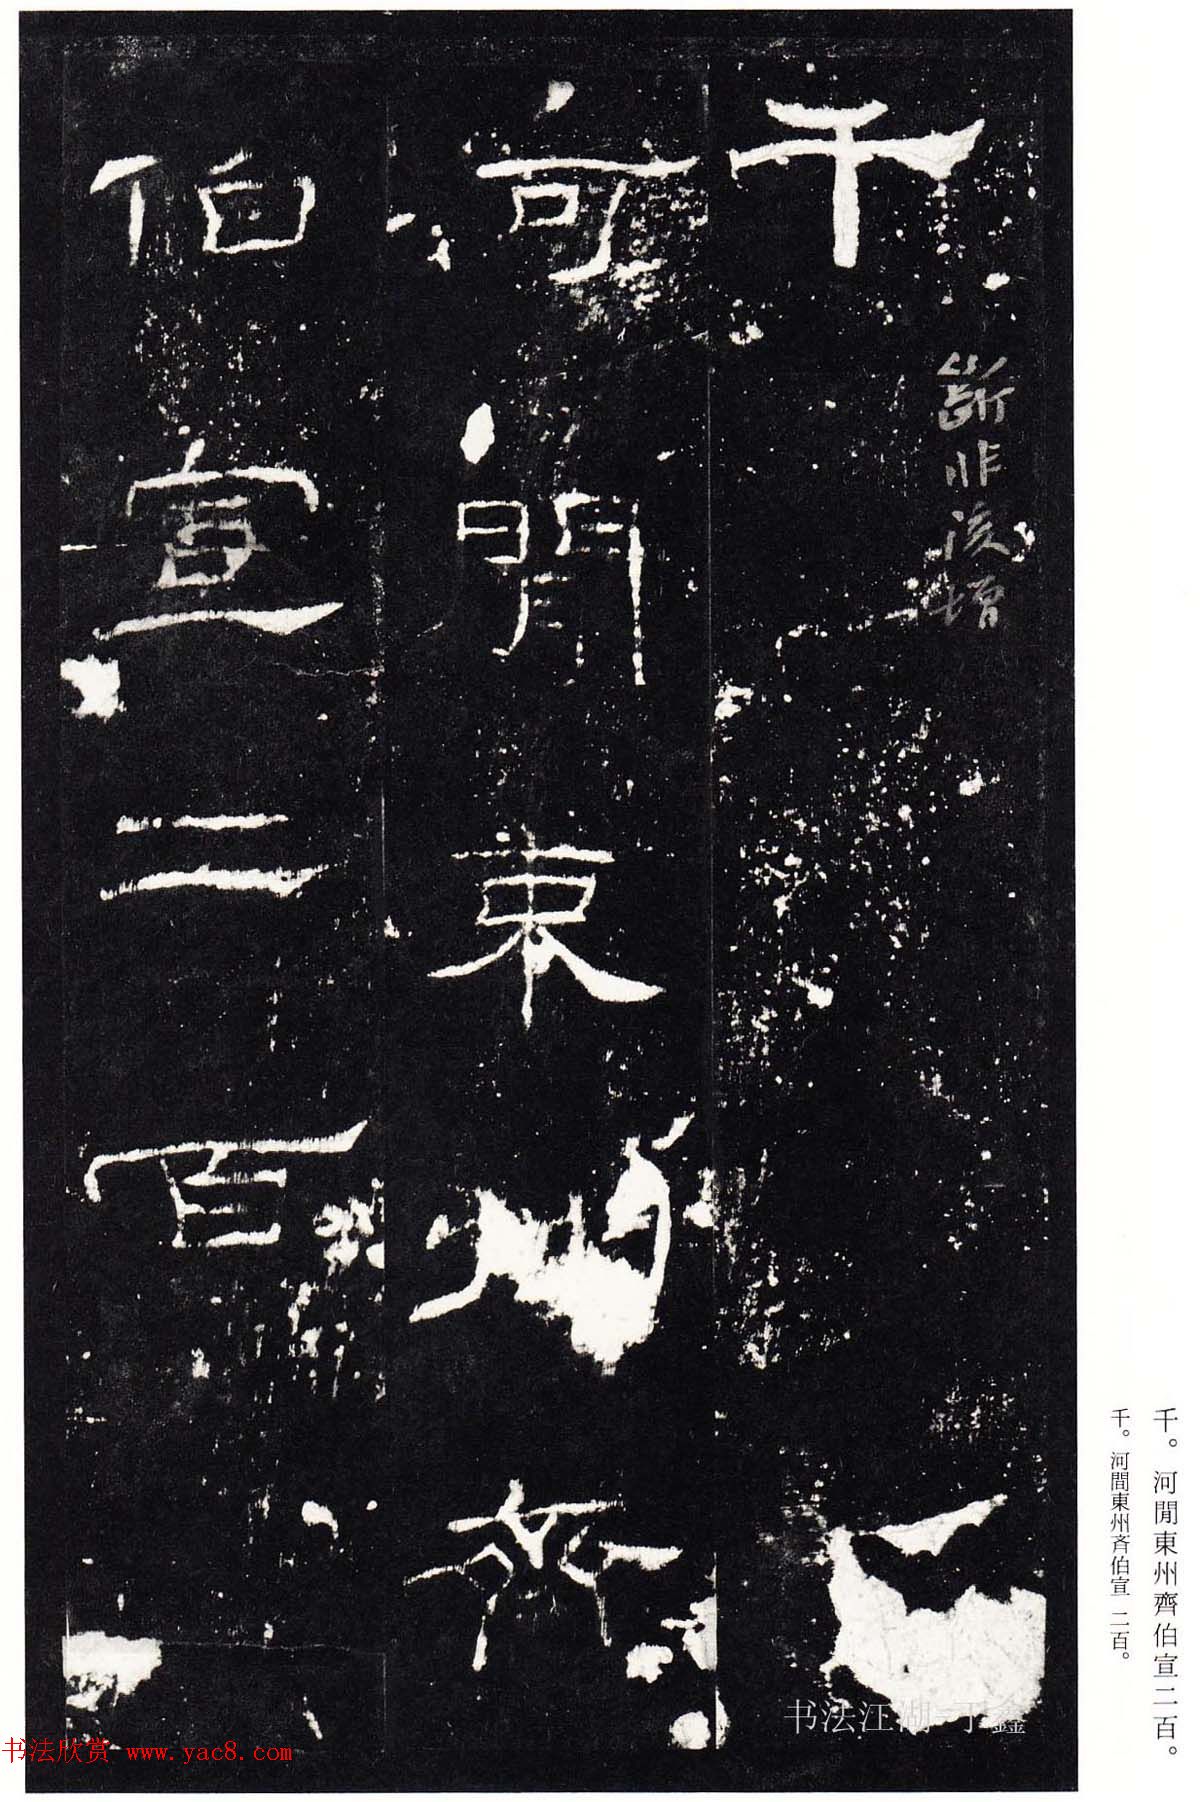 千
斷非後增
河閒東州齊
伯宣二百
千。河閒東州齊伯宣二百。
千。河間東州斉伯宣 二百。
书法江湖-于鑫
书法欣赏 www.yac8.com